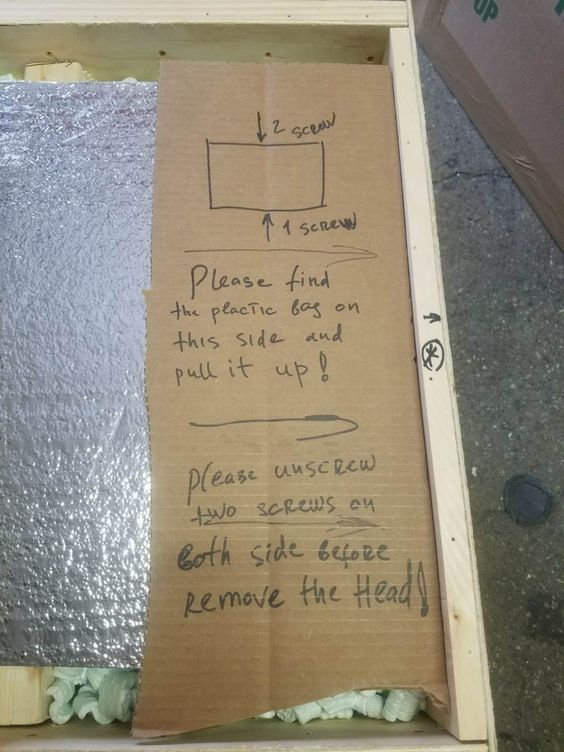 UP
2 SCREW
1 SCREW
Please find
the plactic bag on
this side and
pull it up!
please unscrew
two screws on
Both side before
remove the Head!